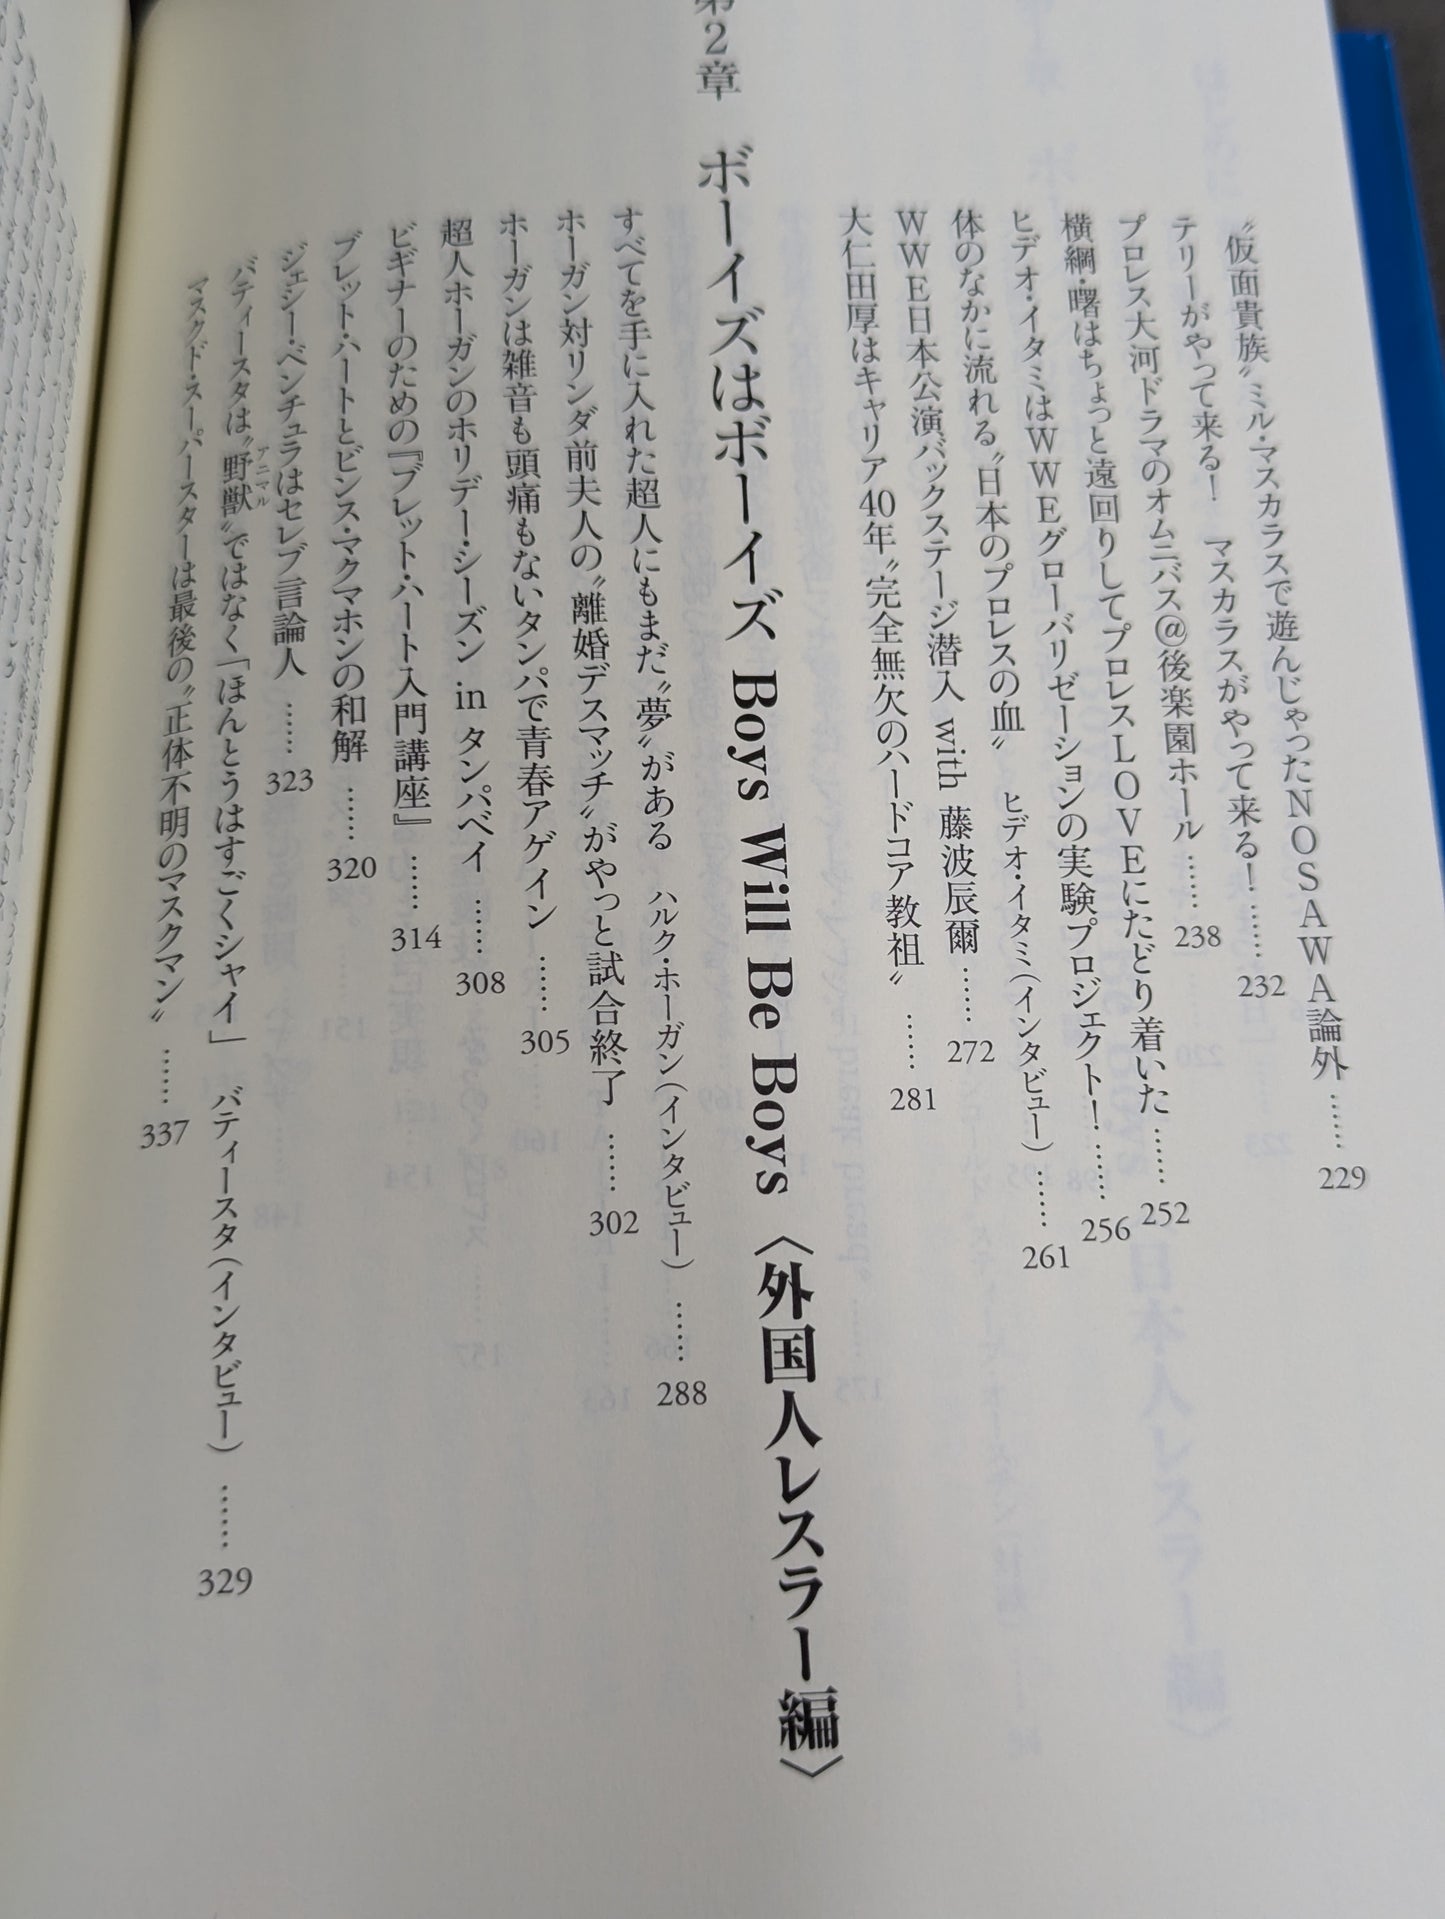 〝仮面貴族〟ミル・マスカラスで遊んじゃったＮＯＳＡＷＡ論外 …… 229
テリーがやって来る！　マスカラスがやって来る！ …… 232
プロレス大河ドラマのオムニバス＠後楽園ホール …… 238
横綱・曙はちょっと遠回りしてプロレスＬＯＶＥにたどり着いた …… 252
ヒデオ・イタミはＷＷＥグローバリゼーションの実験プロジェクト！ …… 256
体のなかに流れる〝日本のプロレスの血〟　ヒデオ・イタミ（インタビュー） …… 261
ＷＷＥ日本公演バックステージ潜入 with 藤波辰爾 …… 272
大仁田厚はキャリア40年〝完全無欠のハードコア教祖〟 …… 281
第2章　ボーイズはボーイズ Boys Will Be Boys〈外国人レスラー編〉
すべてを手に入れた超人にもまだ〝夢〟がある　ハルク・ホーガン（インタビュー） …… 288
ホーガン対リンダ前夫人の〝離婚デスマッチ〟がやっと試合終了 …… 302
ホーガンは雑音も頭痛もないタンパで青春アゲイン …… 305
超人ホーガンのホリデー・シーズン in タンパベイ …… 308
ビギナーのための『ブレット・ハート入門講座』 …… 314
ブレット・ハートとビンス・マクマホンの和解 …… 320
ジェシー・ベンチュラはセレブ言論人 …… 323
バティースタは〝野獣〟ではなく「ほんとうはすごくシャイ」　バティースタ（インタビュー） …… 329
アニマル
マスクド・スーパースターは最後の〝正体不明のマスクマン〟 …… 337